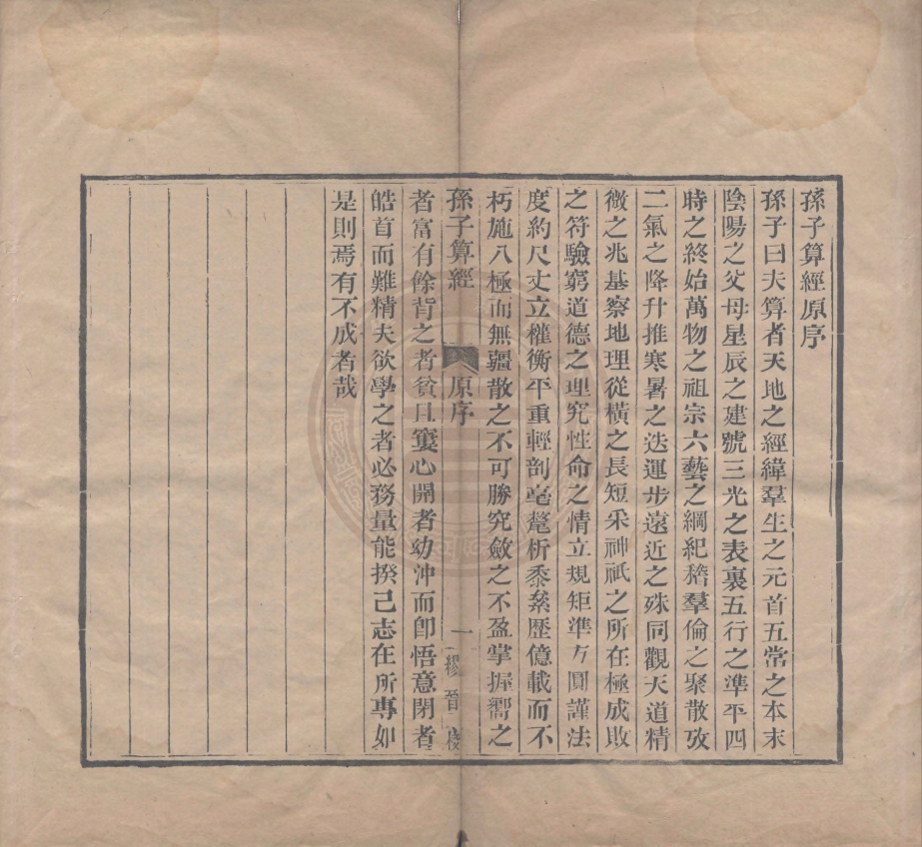 孫子算經原序
孫子曰夫算者天地之經緯羣生之元首五常之本末
陰陽之父母星辰之建號三光之表裏五行之準平四
時之終始萬物之祖宗六藝之綱紀稽羣倫之聚散攷
二氣之降升推寒暑之迭運步遠近之殊同觀天道精
微之兆基察地理從橫之長短采神祇之所在極成敗
之符驗窮道德之理究性命之情立規矩準方圓謹法
度約尺丈立權衡平重輕剖毫氂析黍絫歷億載而不
朽施八極而無疆散之不可勝究斂之不盈掌握嚮之
孫子算經 原序 一
者富有餘背之者貧且窶心開者幼沖而卽悟意閉者
皓首而難精夫欲學之者必務量能揆己志在所專如
是則焉有不成者哉